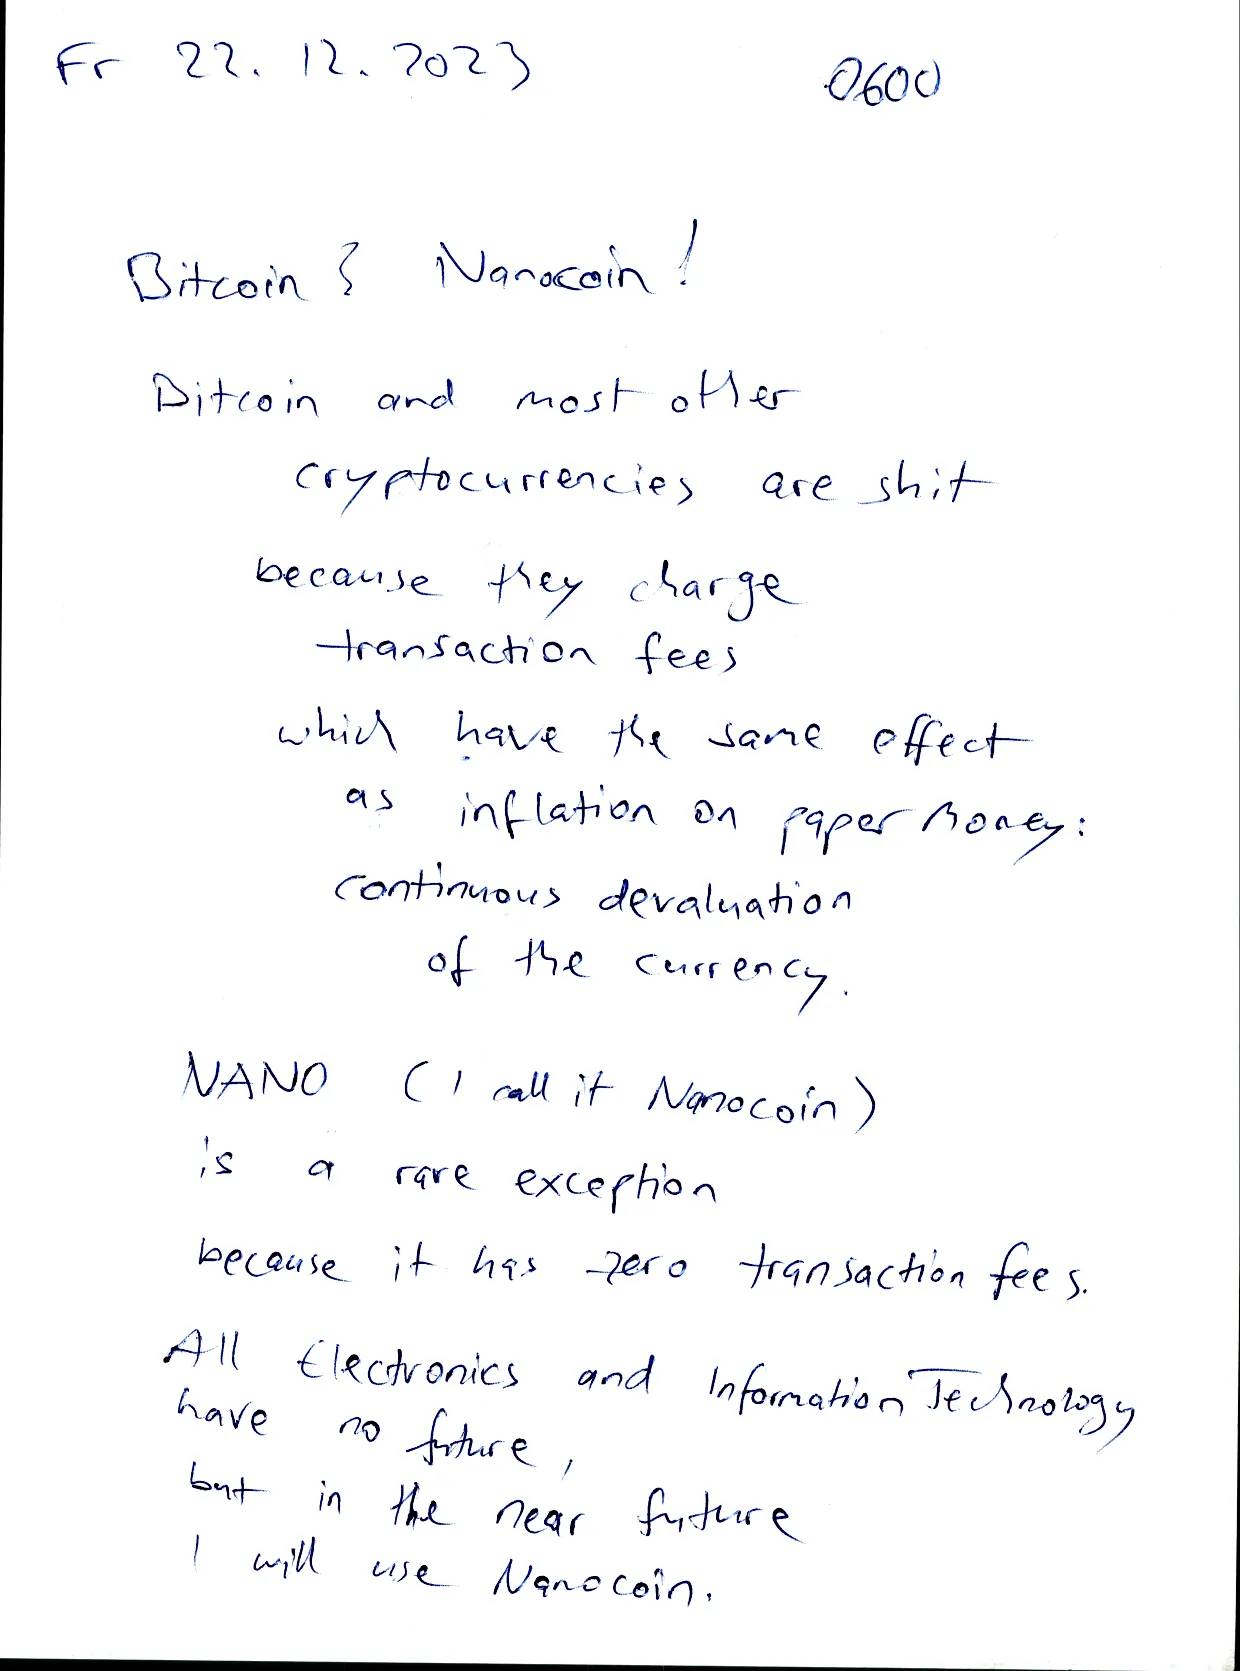 Fr 22. 12. 2023 0600
Bitcoin? Nanocoin!
Bitcoin and most other
cryptocurrencies are shit
because they charge
transaction fees
which have the same effect
as inflation on paper money:
continuous devaluation
of the currency.
NANO (I call it Nanocoin)
is a rare exception
because it has zero transaction fees.
All Electronics and Information Technology
have no future,
but in the near future
I will use Nanocoin.